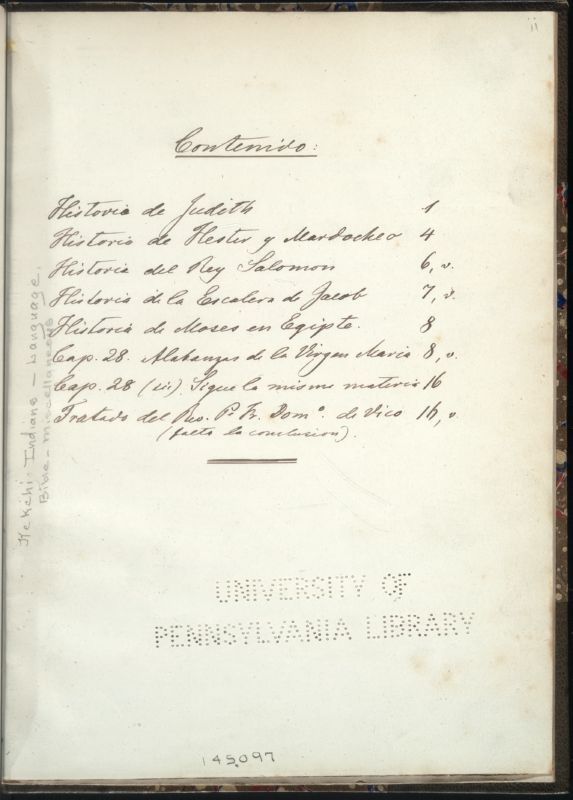 ii
Contenido:
Historia de Judith 1
Historia de Hester y Mardocheo 4
Historia del Rey Salomon 6, v.
Historia de la Escalera de Jacob 7, v.
Historia de Moses en Egipto. 8
Cap. 28. Alabanzas de la Virgen Maria 8, v.
Cap. 28 (sic). Sigue la misma materia 16
Tratado del Rev. P. Fr. Domo. de Vico 16, v.
(falta la conclusion).
Kekchi Indians – Language.
Bible – Miscellaneous
UNIVERSITY OF
PENNSYLVANIA LIBRARY
145097